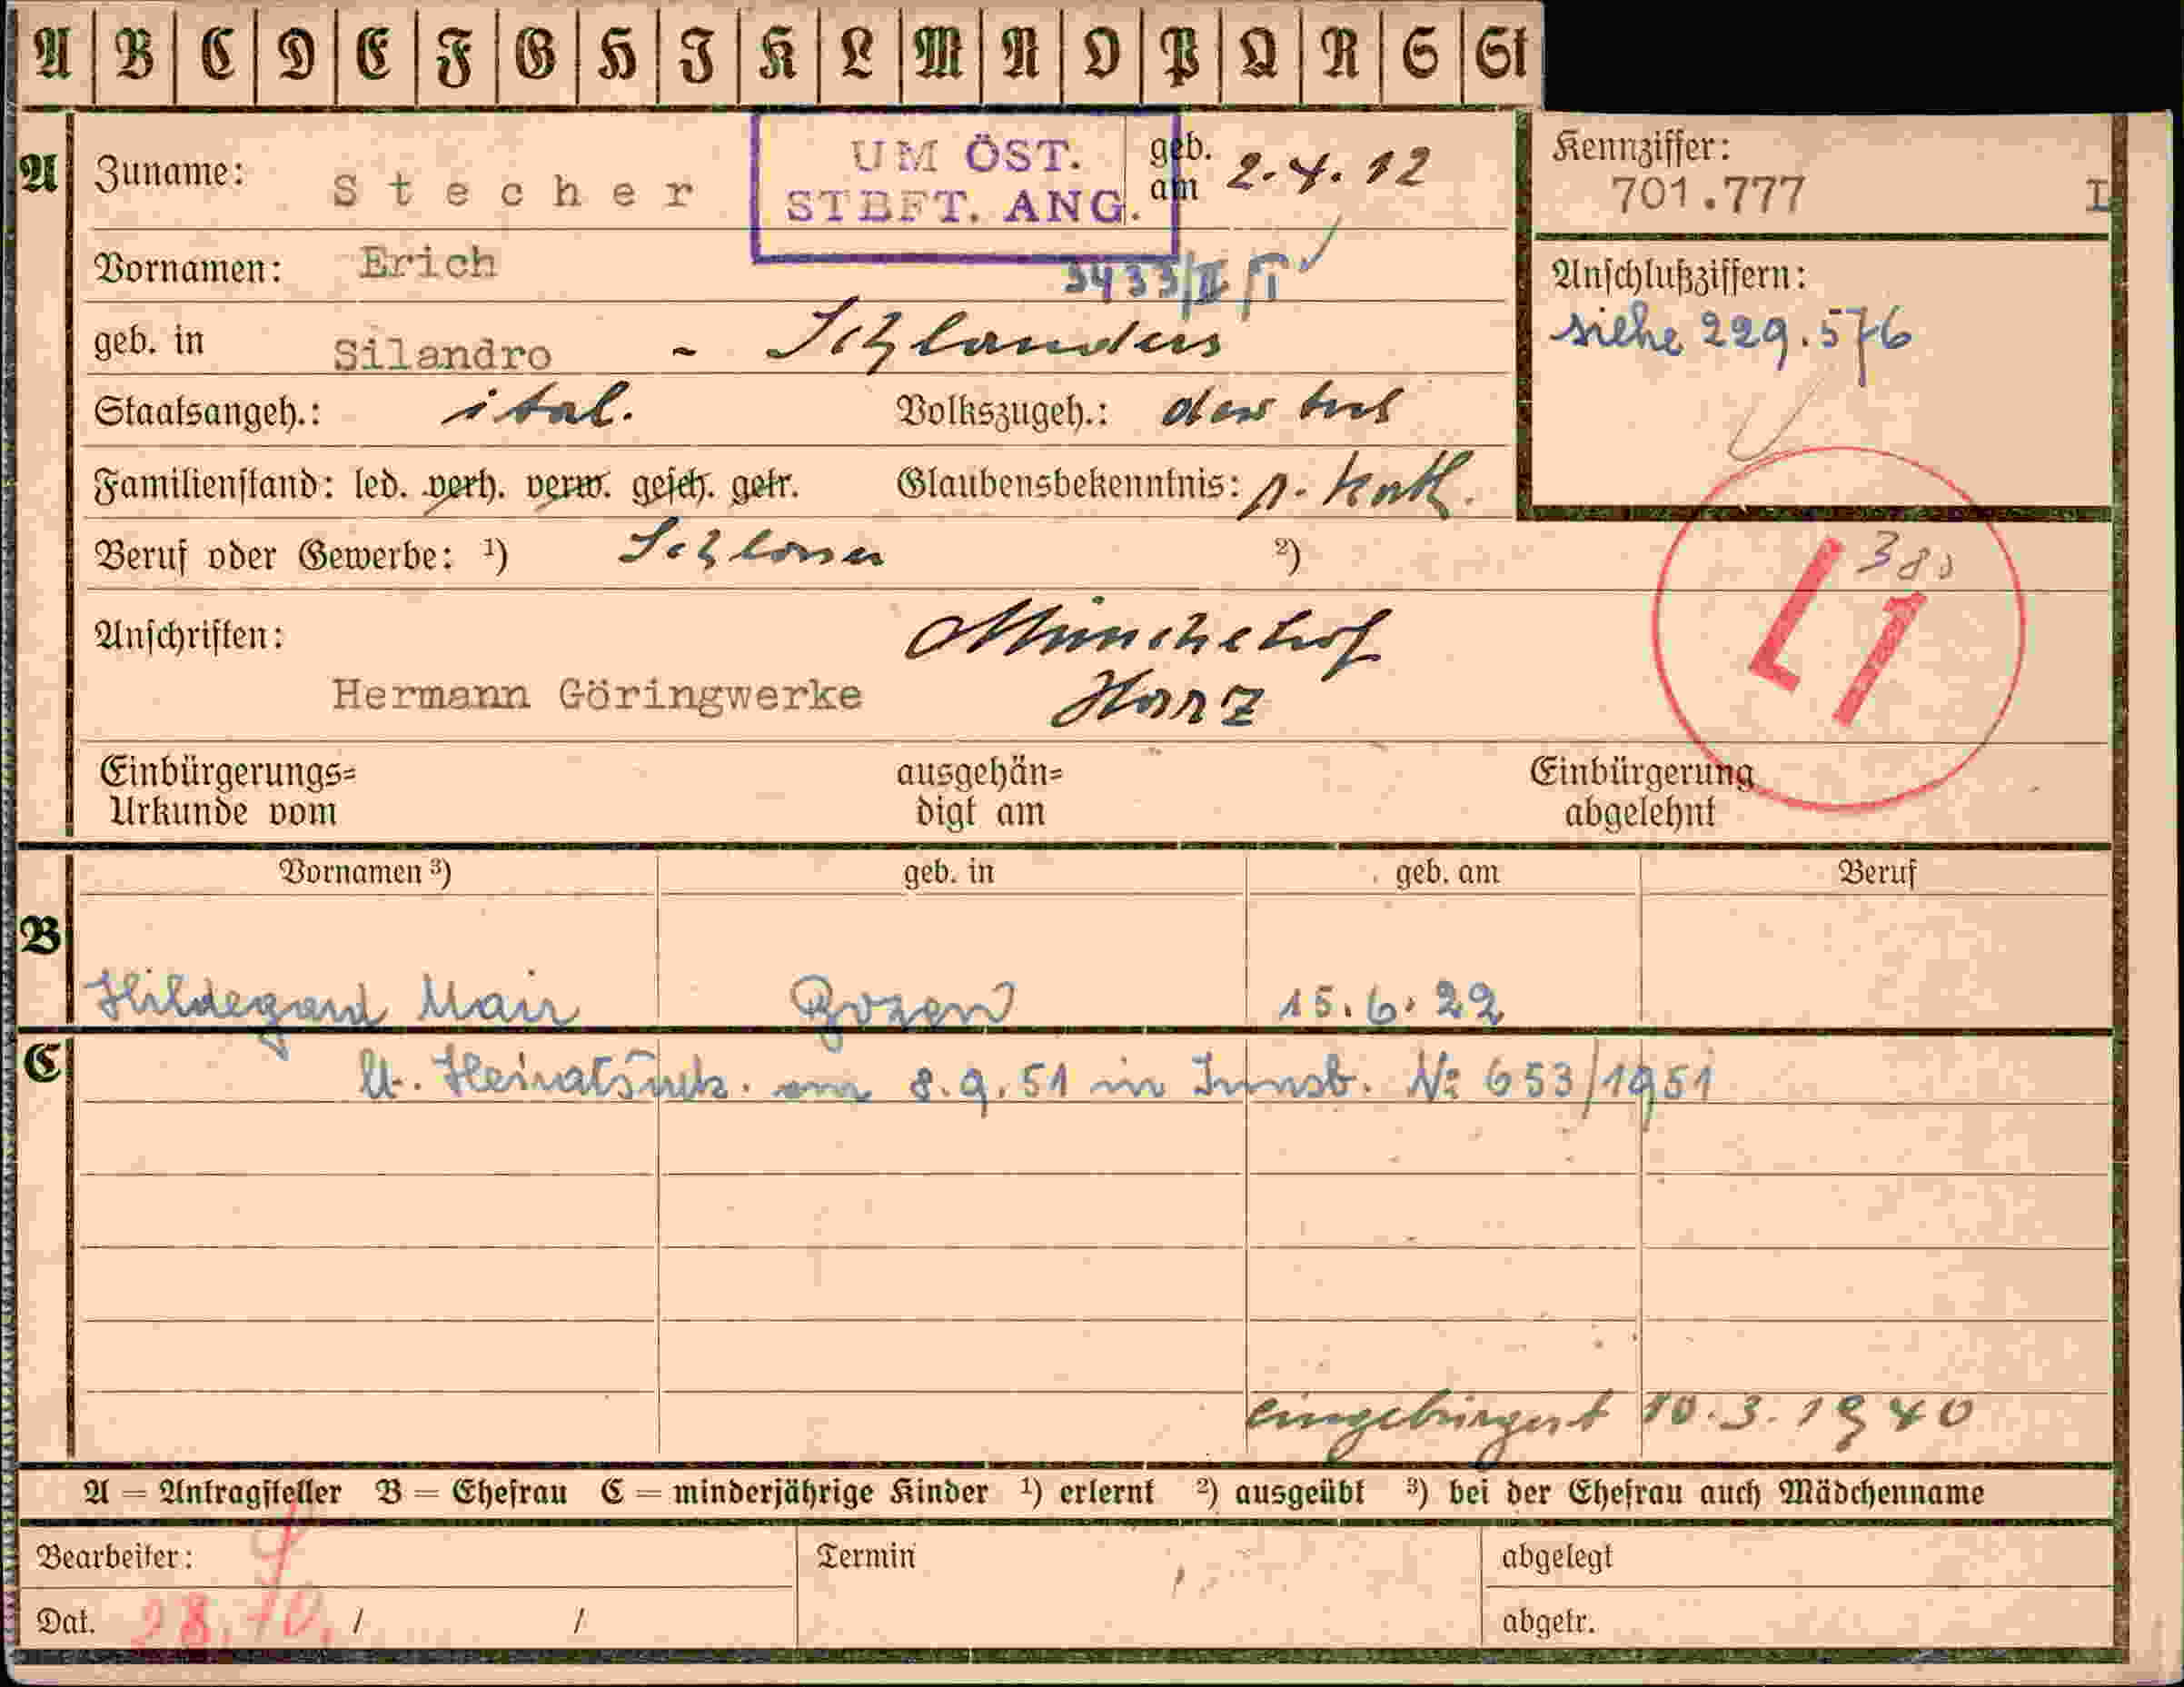 A B C D E F G H I K L M N O P Q R S St
A Zuname: Stecher
UM ÖST.
STBFT. ANG.
geb. am 2.4.12
Kennziffer:
701.777 I
Vornamen: Erich
3433/II/
Anschlußziffern:
siehe 229.576
geb. in Silandro - Schlanders
Staatsangeh.: ital. Volkszugeh.: deutsch
Familienstand: led. verh. verw. gesch. getr. Glaubensbekenntnis: r. kath.
Beruf oder Gewerbe: ¹) Schlosser ²)
L1
Anschriften: Münchehof
Hermann Göringwerke Harz
Einbürgerungs=
Urkunde vom
ausgehän=
digt am
Einbürgerung
abgelehnt
Vornamen ³) geb. in geb. am Beruf
B
Hildegard Mair Bozen 15.6.22
C
lt. Heiratsurk. am 8.9.51 in Innsb. № 653/1951
eingebürgert 10.3.1940
A = Antragsteller B = Ehefrau C = minderjährige Kinder ¹) erlernt ²) ausgeübt ³) bei der Ehefrau auch Mädchenname
Bearbeiter: Termin abgelegt
Dat. 28.10. / / abgetr.